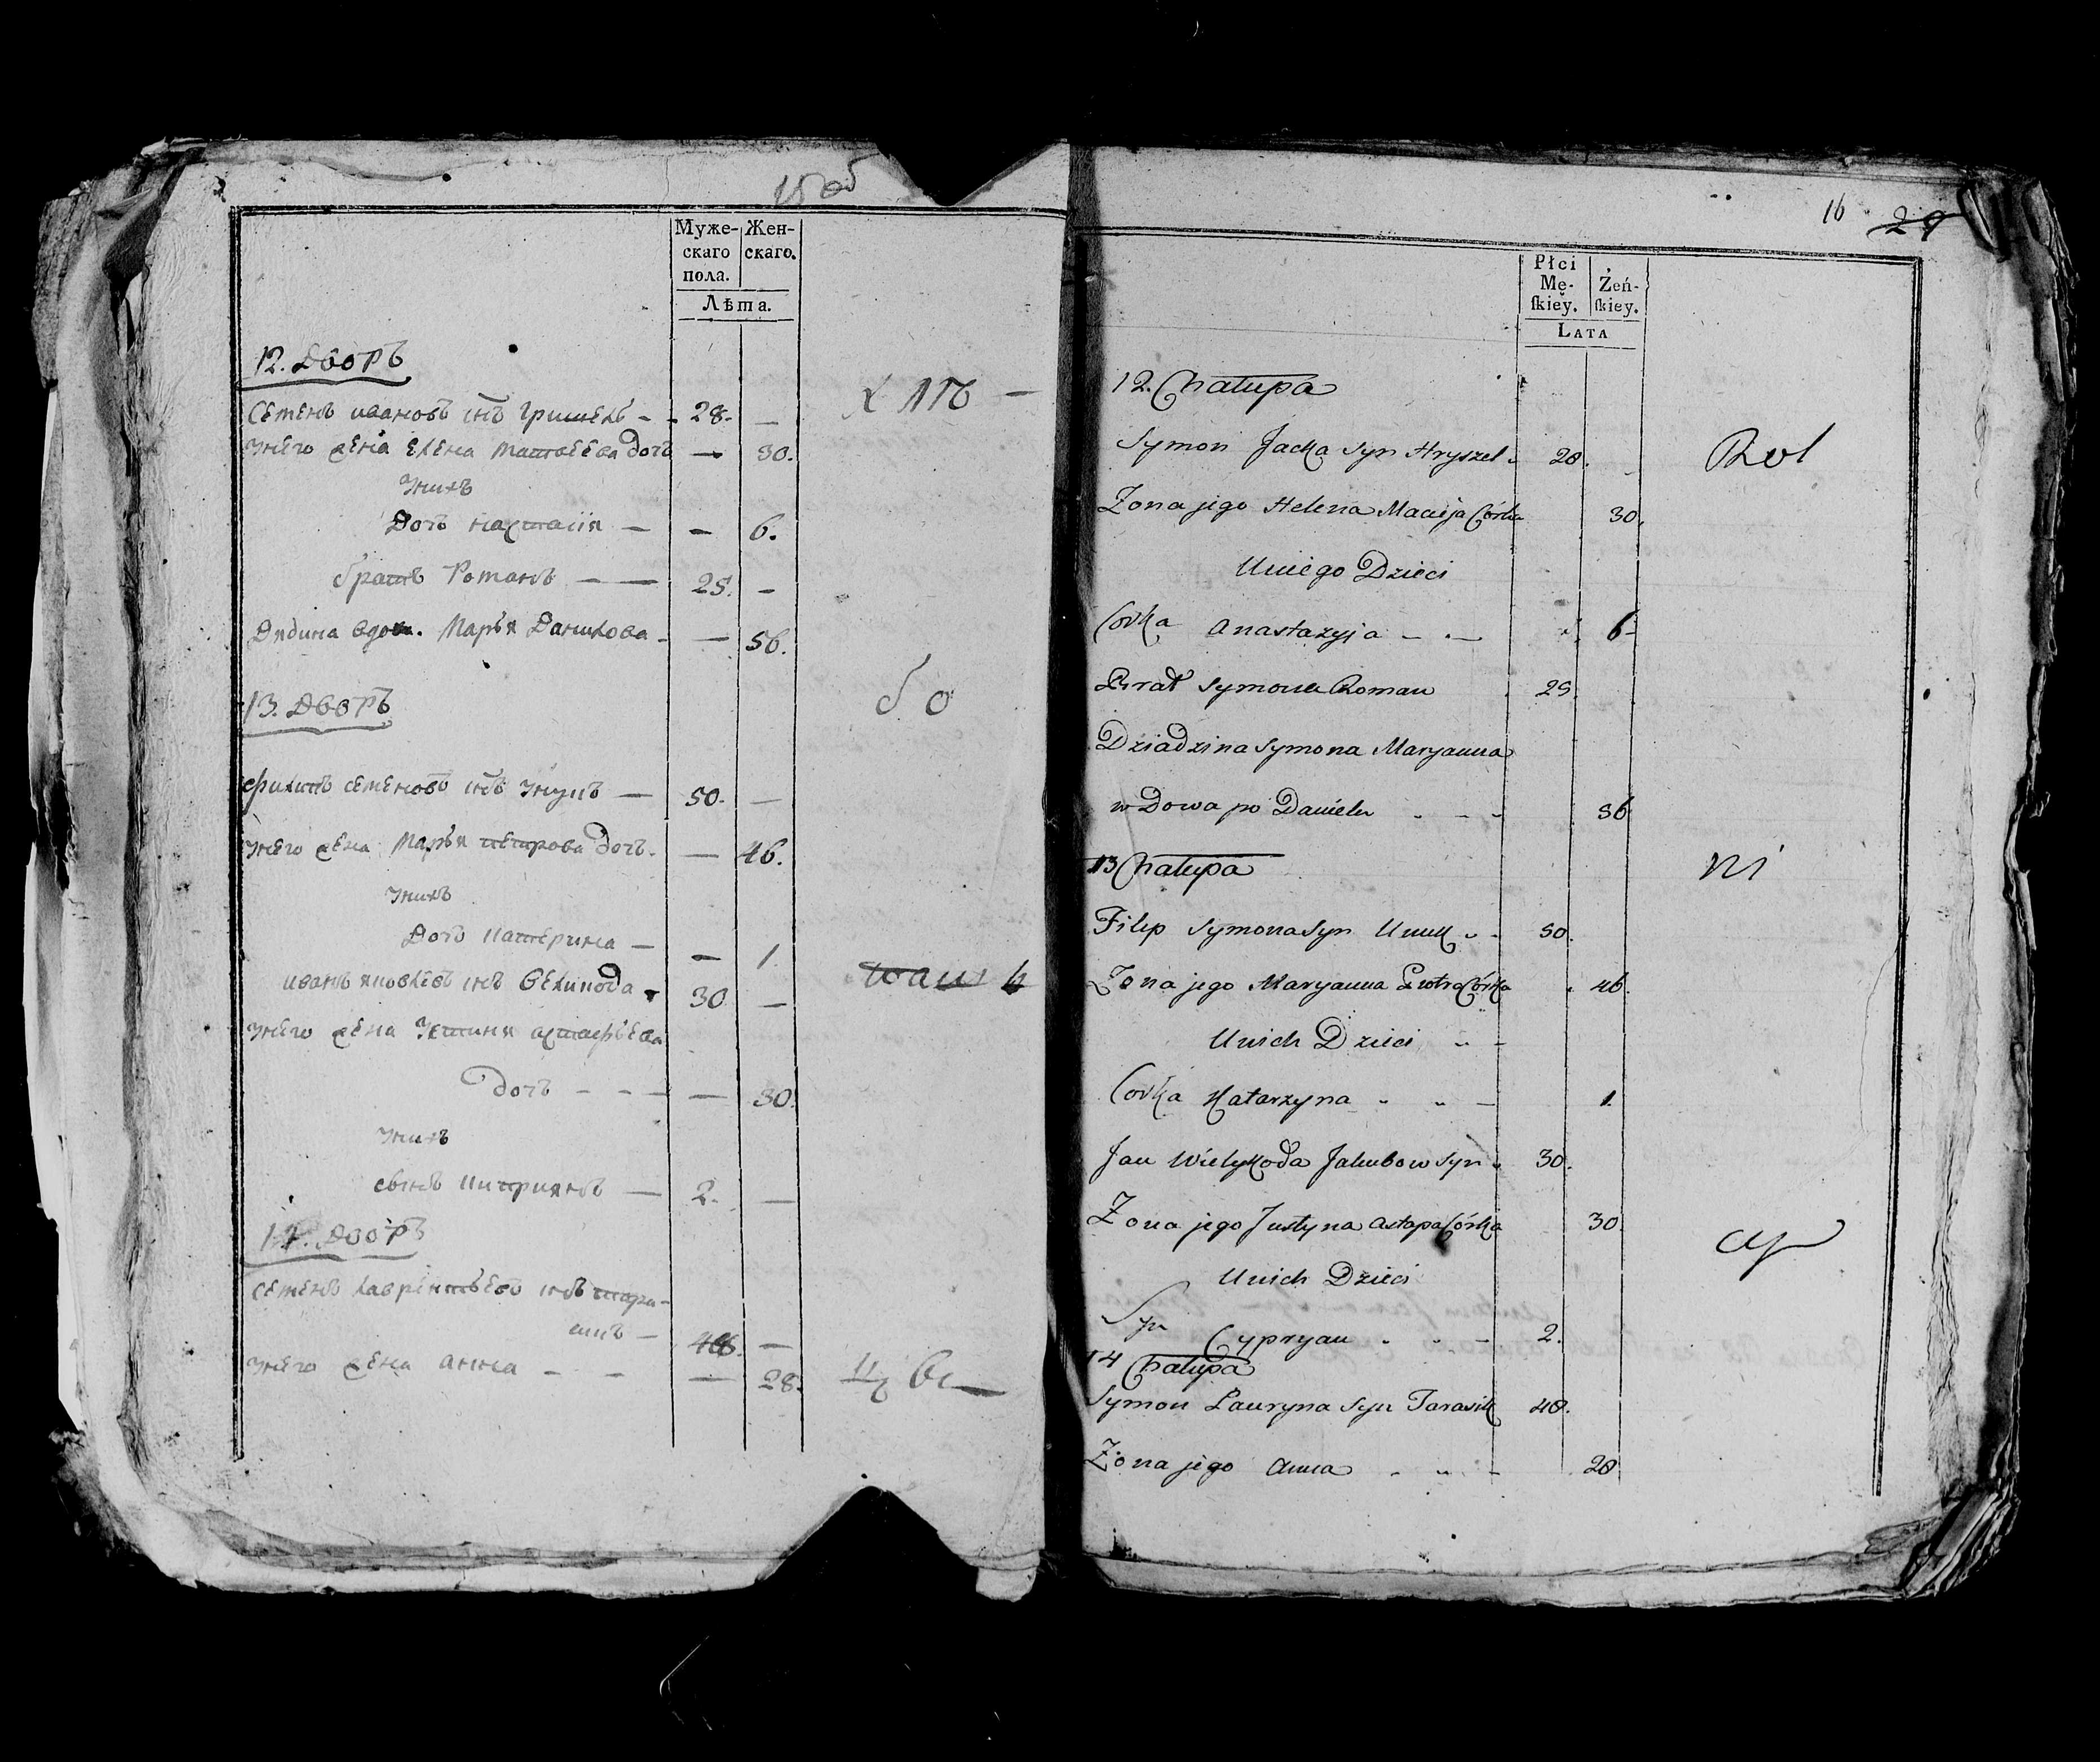 15 об
Муже-
скаго
пола.
Жен-
скаго.
Лѣта.
12. Дворъ
Семенъ ивановъ снъ Гришель - - 28. —
Унего жена Елена Матвеева дочь — 30.
Унихъ
Дочь настасия — — 6.
братъ Романъ — — 25. —
Дядина вдова. Марья Данилова - — 56.
13. Дворъ
Филипъ семеновъ снъ Унукъ — 50. —
Унего жена Марья петрова дочь. — 46.
Унихъ
Дочь катерина — — 1
иванъ яковлевъ снъ Великода 30 —
Унего жена Устиня астафьева
дочь - - - — 30.
Унихъ
сынъ киприянъ — 2. —
14. Дворъ
семенъ лаврентьевъ снъ тара-
сикъ — 48. —
Унего жена анна - - — 28.
16 29
Płci
Mę-
skiey.
Żeń-
skiey.
Lata
12. Chałupa
Symon Jacka syn Hryszel 28.
Żona jego Helena Macieja Córka 30.
Uniego Dzieci
Corka Anastazyja - - 6-
Brat Symona Roman 25.
Dziadzina Symona Maryanna
wDowa po Danielu - - - 56
13 Chałupa
Filip Symona Syn Unuk - - 50.
Żona jego Maryanna Piotra Córka 46.
Unich Dzieci - -
Corka Katarzyna - - - 1.
Jan Wielykoda Jakubow syn 30.
Żona jego Justyna Astapa Córka 30
Unich Dzieci
Syn Cypryan - - - 2.
14 Chałupa
Symon Lauryna Syn Tarasik 48.
Żona jego Anna - - - 28